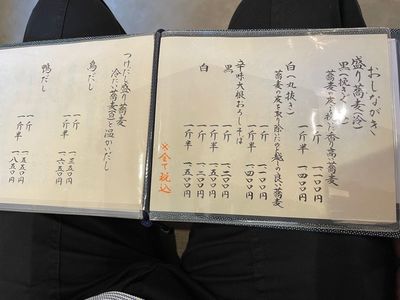 おしながき
盛り蕎麦(冷)
黒(挽きぐるみ)
蕎麦の皮も挽いた香り高い蕎麦
一斤 一一〇〇円
一斤半 一四〇〇円
白(丸抜き)
蕎麦の皮を取り除いたのど越しの良い蕎麦
一斤 一一〇〇円
一斤半 一四〇〇円
辛味大根おろしそば
黒
一斤 一二〇〇円
一斤半 一五〇〇円
白
一斤 一二〇〇円
一斤半 一五〇〇円
※全て税込
つけだし盛り蕎麦
冷たい蕎麦(白)と温かいだし
鳥だし
一斤 一三五〇円
一斤半 一六五〇円
鴨だし
一斤 一五五〇円
一斤半 一八五〇円